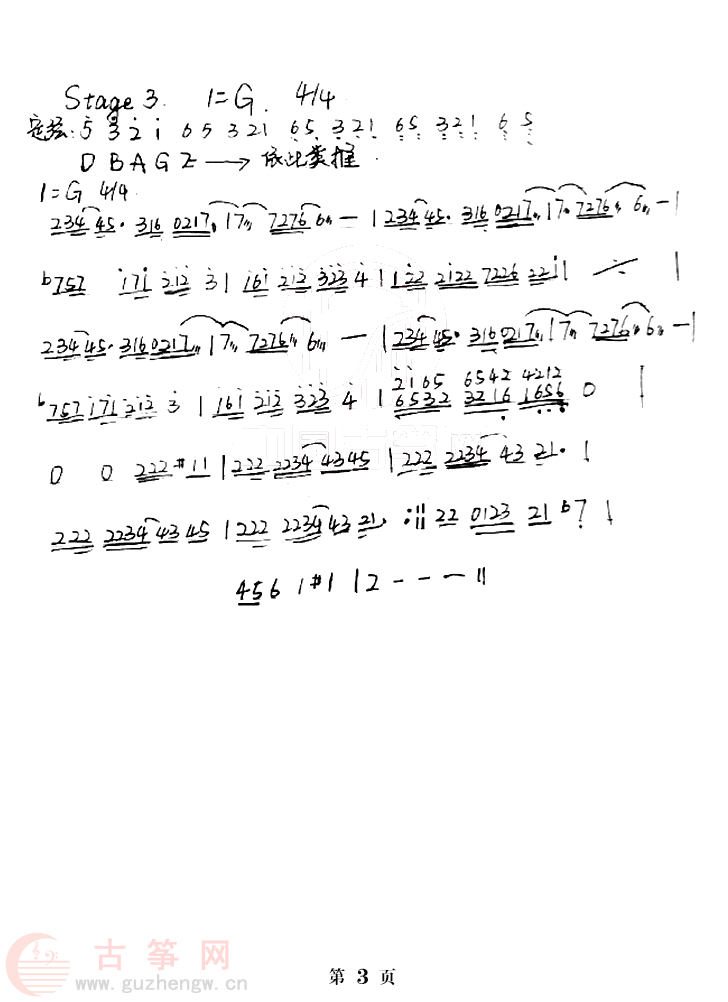 Stage 3. 1=G. 4/4
定弦: 5 3 2 i 6 5 3 2 1 6 5 3 2 1 6 5 3 2 1 6 5
D B A G E → 依此类推.
1=G 4/4
234 45· 316 0217 17 7276 6 — | 234 45· 316 0217 | 17· 7276 6 — |
b757 i7i 2i2 3 | i6i 2i2 323 4 | i22 2i22 7226 22i | ÷ |
234 45· 316 0217 | 17 7276 6 — | 234 45· 316 0217 | 17 7276 6 — |
b757 i7i 2i2 3 | i6i 2i2 323 4 | 6532 3216 1656 0 |
2i65 6542 4212
0 0 222 #11 | 222 2234 4345 | 222 2234 43 21· |
222 2234 43 45 | 222 2234 43 21· :|| 22 0123 21 b7 |
456 1 #1 | 2 - - - ||
中国古筝网
古筝网
www.guzhengw.cn
第 3 页